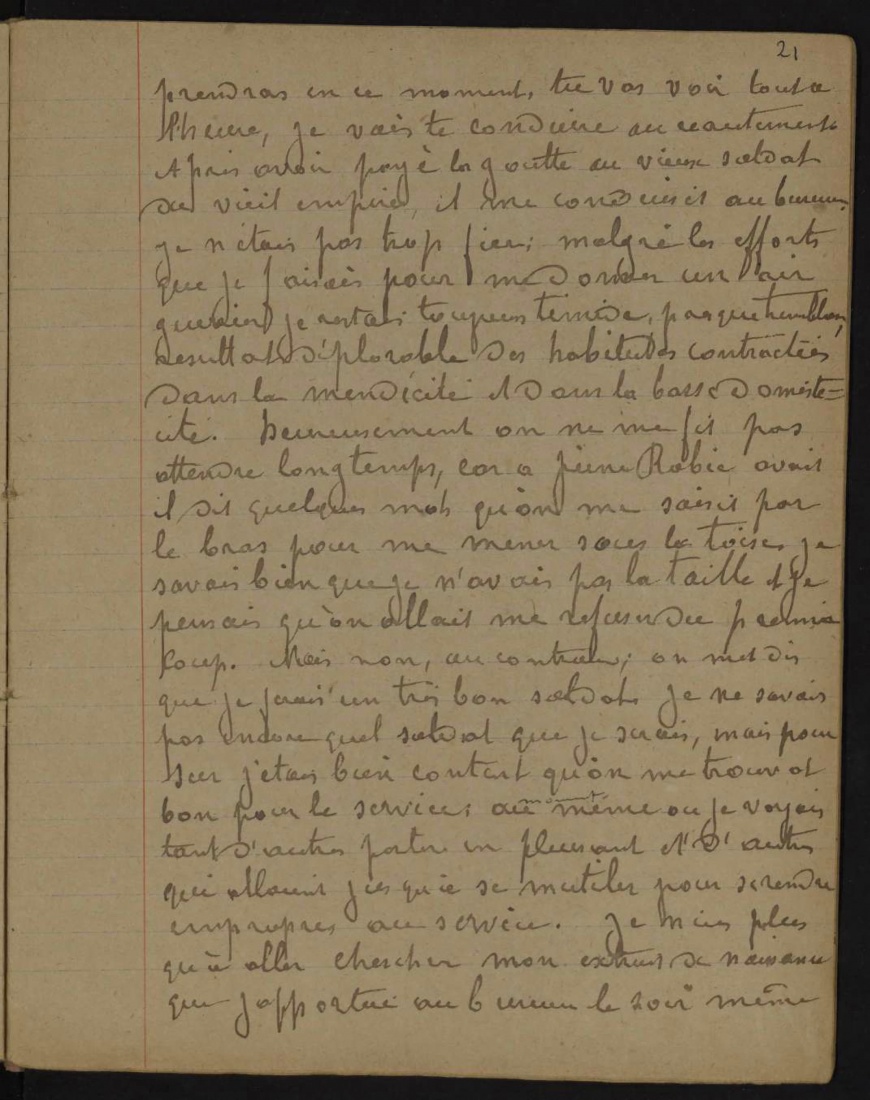 21
prendras en ce moment, tu vas voir tout a
l'heure, je vais te conduire au recrutement.
Après avoir payé la goutte au vieux soldat
du vieil empire, il me conduisit au bureau.
je n'étais pas trop fier; malgré les efforts
que je faisais pour me donner un air
guerrier je restais toujours timide, presque tremblant,
résultat déplorable des habitudes contractées
dans la mendicité et dans la basse domesti=
cité. heureusement on ne me fit pas
attendre longtemps, car a peine Robic avait
il dit quelques mots qu'on me saisit par
le bras pour me mener sous la toise, je
savais bien que je n'avais pas la taille et je
pensais qu'on allait me refuser du premier
coup. Mais non, au contraire; on me dis
que je ferais un très bon soldat. je ne savais
pas encore quel soldat que je serais, mais pour
sur j'étais bien content qu'on me trouvat
bon pour le service; au moment même ou je voyais
tant d'autres partir en pleurant et d'autres
qui allaient jusqu'à se mutiler pour se rendre
impropres au service. Je n'eus plus
qu'à aller chercher mon extrait de naissance
que j'apportai au bureau le soir même